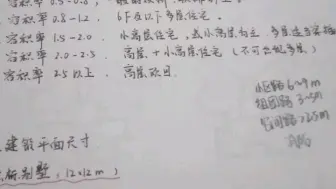 容积率 0.8-1.2 . 6F在以下多层住宅.
容积率 1.5-2.0 . 小高层住宅, 或小高层为主, 多层
容积率 2.0-2.5 . 高层+小高层住宅 (不可出现多层)
容积率 2.5以上. 高层项目.
6~9m
组团路 3~5m
2.5m
建筑平面尺寸
别墅: 12×12m)